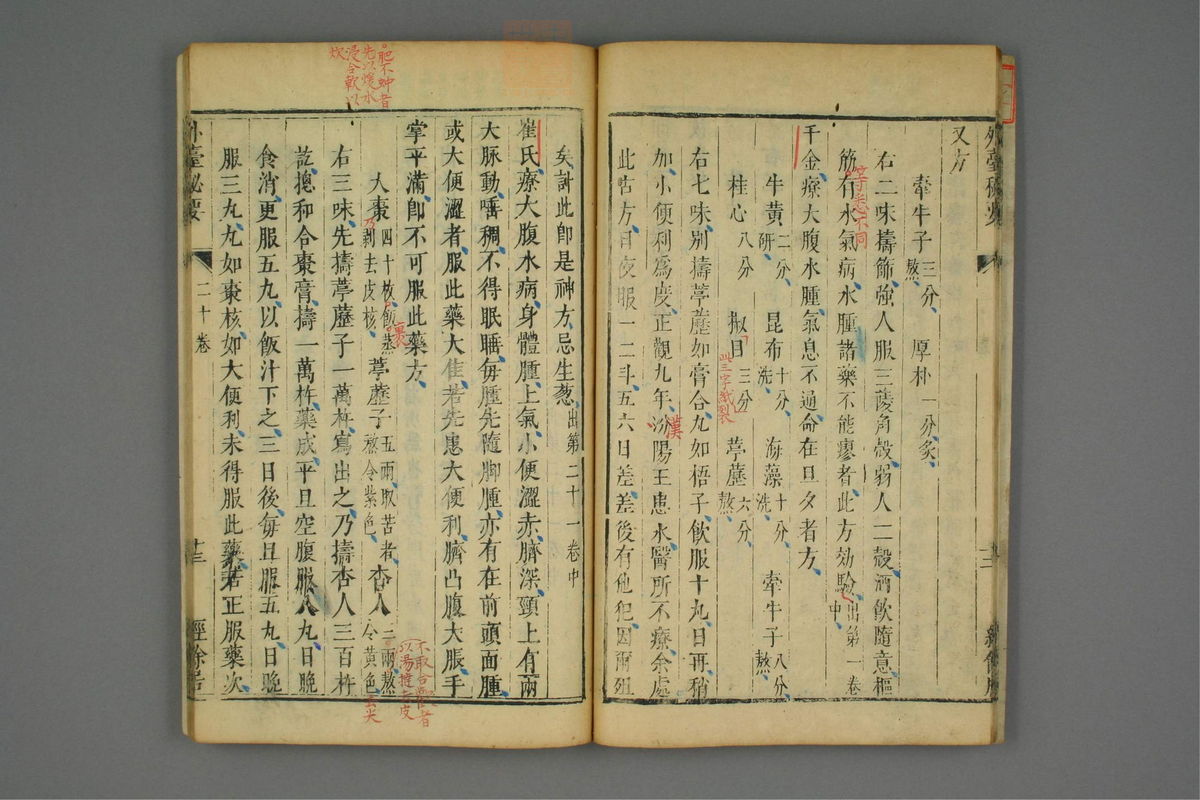 又方
牽牛子三分熬 厚朴一分炙
右二味擣篩強人服三蔆角殼弱人二殼酒飲隨意樞
筋有水氣病水腫諸藥不能瘳者此方効驗出第一卷中
等悉不同
千金療大腹水腫氣息不通命在旦夕者方
牛黃二分研 昆布十分洗 海藻十分洗 牽牛子八分熬
桂心八分 椒目三分 葶藶六分熬
此三字紙裂
右七味別擣葶藶如膏合丸如梧子飲服十丸日再稍
加小便利為度正觀九年汾陽王患水醫所不療余處
漢
此古方日夜服一二斗五六日差差後有他犯因爾殂
外臺秘要
矣計此即是神方忌生葱出第二十一卷中
崔氏療大腹水病身體腫上氣小便澀赤臍深頸上有兩
大脉動嗜稠不得眠睡每腫先隨脚腫亦有在前頭面腫
或大便澀者服此藥大佳若先患大便利臍凸腹大脹手
掌平滿即不可服此藥方
大棗四十枚飯蒸剥去皮核 葶藶子五兩取苦者熬令紫色 杏人二兩熬令黃色
裹
乃
去尖
不取合雙者
以湯揵去皮
右三味先擣葶藶子一萬杵寫出之乃擣杏人三百杵
訖摠和令棗膏擣一萬杵藥成平旦空腹服八丸日晚
食消更服五丸以飯汁下之三日後每旦服五丸日晚
服三丸丸如棗核如大便利未得服此藥若正服藥次
肥不妕者
先以煖水
浸令軟以
炊
外臺秘要 二十卷 十三 經餘居